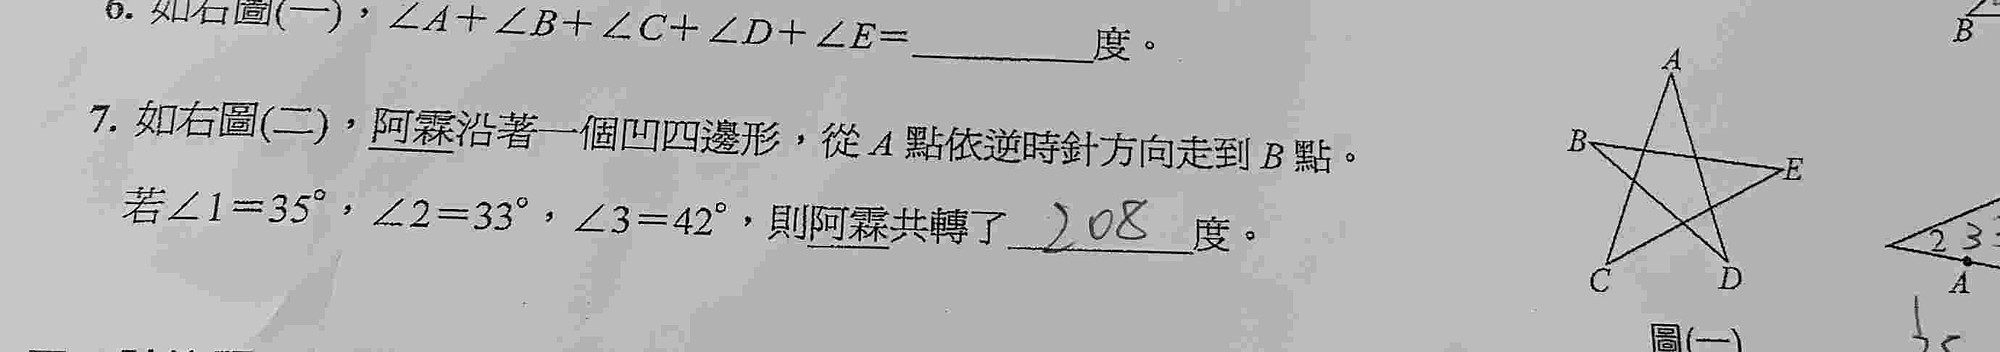 6. 如右圖(一)，∠A＋∠B＋∠C＋∠D＋∠E＝________度。
7. 如右圖(二)，阿霖沿著一個凹四邊形，從 A 點依逆時針方向走到 B 點。
若∠1＝35°，∠2＝33°，∠3＝42°，則阿霖共轉了 208 度。
B
A
B
E
C
D
圖(一)
2 33
A